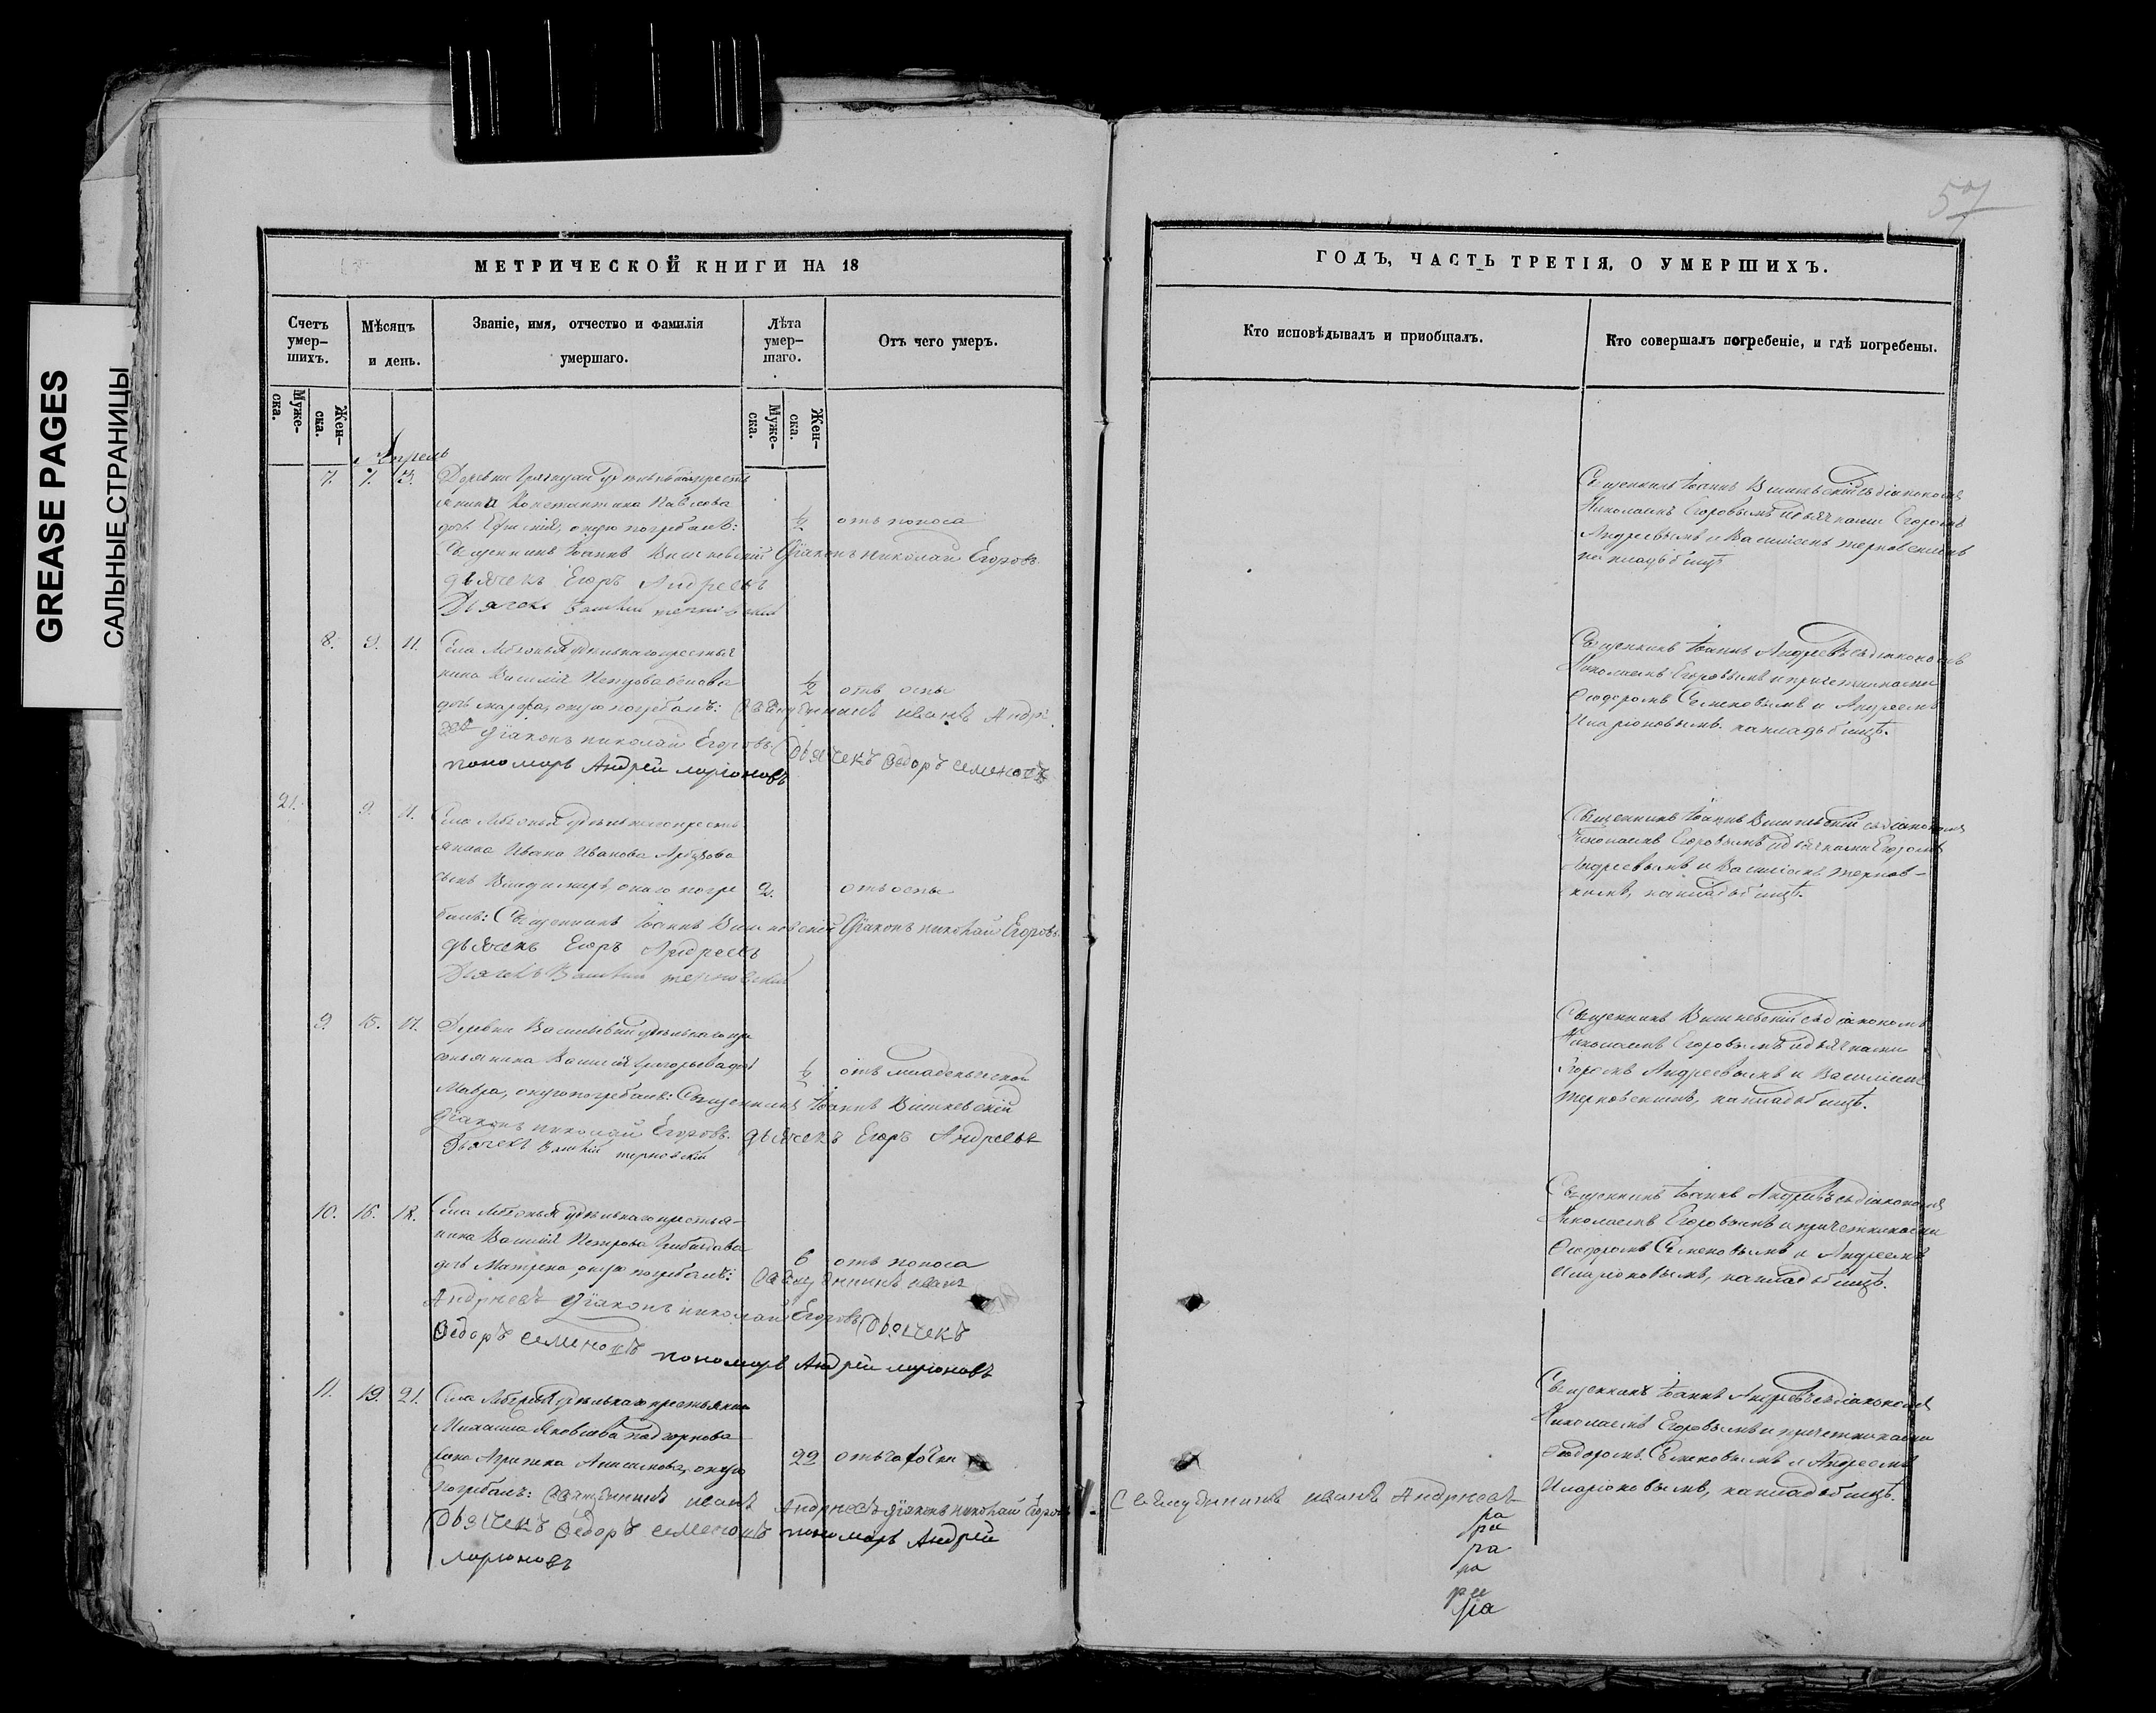 GREASE PAGES
САЛЬНЫЕ СТРАНИЦЫ
57
МЕТРИЧЕСКОЙ КНИГИ НА 18
ГОДЪ, ЧАСТЬ ТРЕТІЯ, О УМЕРШИХЪ.
Счетъ умер–шихъ.
Мѣсяцъ и день.
Званіе, имя, отчество и фамилія умершаго.
Лѣта умер–шаго.
Отъ чего умеръ.
Кто исповѣдывалъ и приобщалъ.
Кто совершалъ погребеніе, и гдѣ погребены.
Муже–ска.
Жен–ска.
Муже–ска.
Жен–ска.
Апрель
7. 7. 3. Деревни удѣльнаго кресть
янина Константина Павлова
дочь оную погребалъ: ½ отъ поноса
Священникъ Іоаннъ Вишневскій Діаконъ Николай Егоровъ
дьячекъ Егоръ Андреевъ
Дьячекъ Василій терновскій
Священникъ Іоаннъ Вишневскій съ діакономъ
Николаемъ Егоровымъ и дьячками Егоромъ
Андреевымъ и Василіемъ терновскимъ
на кладбищѣ
8. 9. 11. Села удѣльнаго крестья
нина Василія Петрова
дочь марфа, оную погребалъ: ½ отъ оспы
Священникъ иванъ Андре
евъ Діаконъ николай Егоровъ. Дьячекъ Ѳедоръ семеновъ
пономарь Андрей ларіоновъ
Священникъ Іоаннъ Андреевъ съ діакономъ
Николаемъ Егоровымъ и причетниками
Ѳеодоромъ Семеновымъ и Андреемъ
Иларіоновымъ. на кладбищѣ.
21. 9. 11. Села удѣльнаго кресть
янина Ивана Иванова
сынъ Владимиръ, онаго погре 2. отъ оспы
балъ: Священникъ Іоаннъ Вишневскій Діаконъ николай Егоровъ.
дьячекъ Егоръ Андреевъ
Дьячекъ Василій терновскій
Священникъ Іоаннъ Вишневскій съ діакономъ
Николаемъ Егоровымъ и дьячками Егоромъ
Андреевымъ и Василіемъ тернов–
скимъ, на кладбищѣ.
9. 15. 17. Деревни удѣльнаго кре
стьянина Василія Григорьева дочь ½ отъ младенческой
Мавра, оную погребалъ: Священникъ Іоаннъ Вишневскій
Діаконъ николай Егоровъ. дьячекъ Егоръ Андреевъ
Дьячекъ Василій терновскій
Священникъ Вишневскій съ діакономъ
Николаемъ Егоровымъ и дьячками
Егоромъ Андреевымъ и Василіемъ
терновскимъ, на кладбищѣ.
10. 16. 18. Села удѣльнаго крестья–
нина Василія Петрова
дочь Матрена, оную погребалъ: 6 отъ поноса
Священникъ иванъ
Андреевъ Діаконъ николай Егоровъ Дьячекъ
Ѳедоръ семеновъ пономарь Андрей ларіоновъ
Священникъ Іоаннъ Андреевъ съ діакономъ
Николаемъ Егоровымъ и причетниками
Ѳеодоромъ Семеновымъ и Андреемъ
Иларіоновымъ, на кладбищѣ.
11. 19. 21. Села удѣльнаго крестьянина
Михаила Яковлева
жена оную 22 отъ
погребалъ: Священникъ иванъ Андреевъ діаконъ николай Егоровъ
Дьячекъ Ѳедоръ семеновъ пономарь Андрей
ларіоновъ
Священникъ иванъ Андреевъ
ра
ра
ра
ра
ра
ра
Священникъ Іоаннъ Андреевъ съ діакономъ
Николаемъ Егоровымъ и причетниками
Ѳеодоромъ Семеновымъ и Андреемъ
Иларіоновымъ, на кладбищѣ.